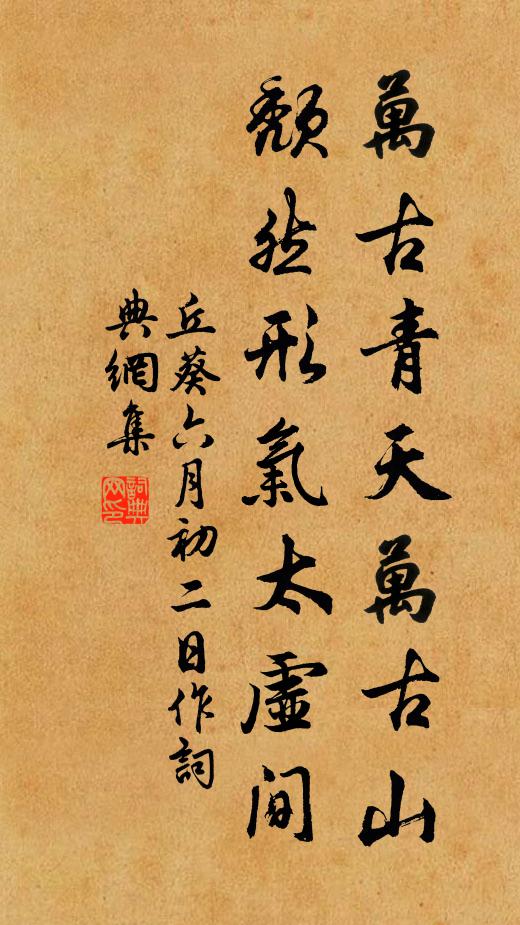 萬古青天萬古山
頽然形氣太虛間
丘葵六月初二日作詞
典網集
詞典
网印